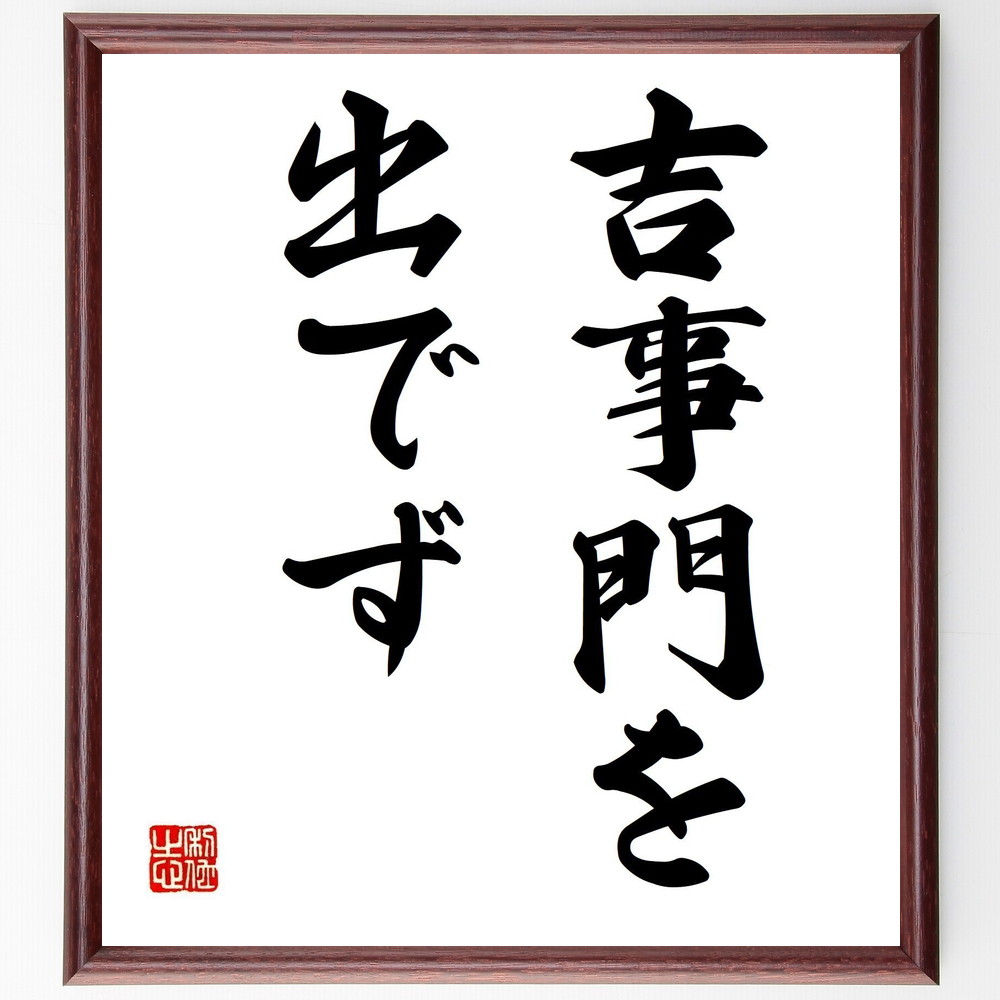 吉事門を
出でず